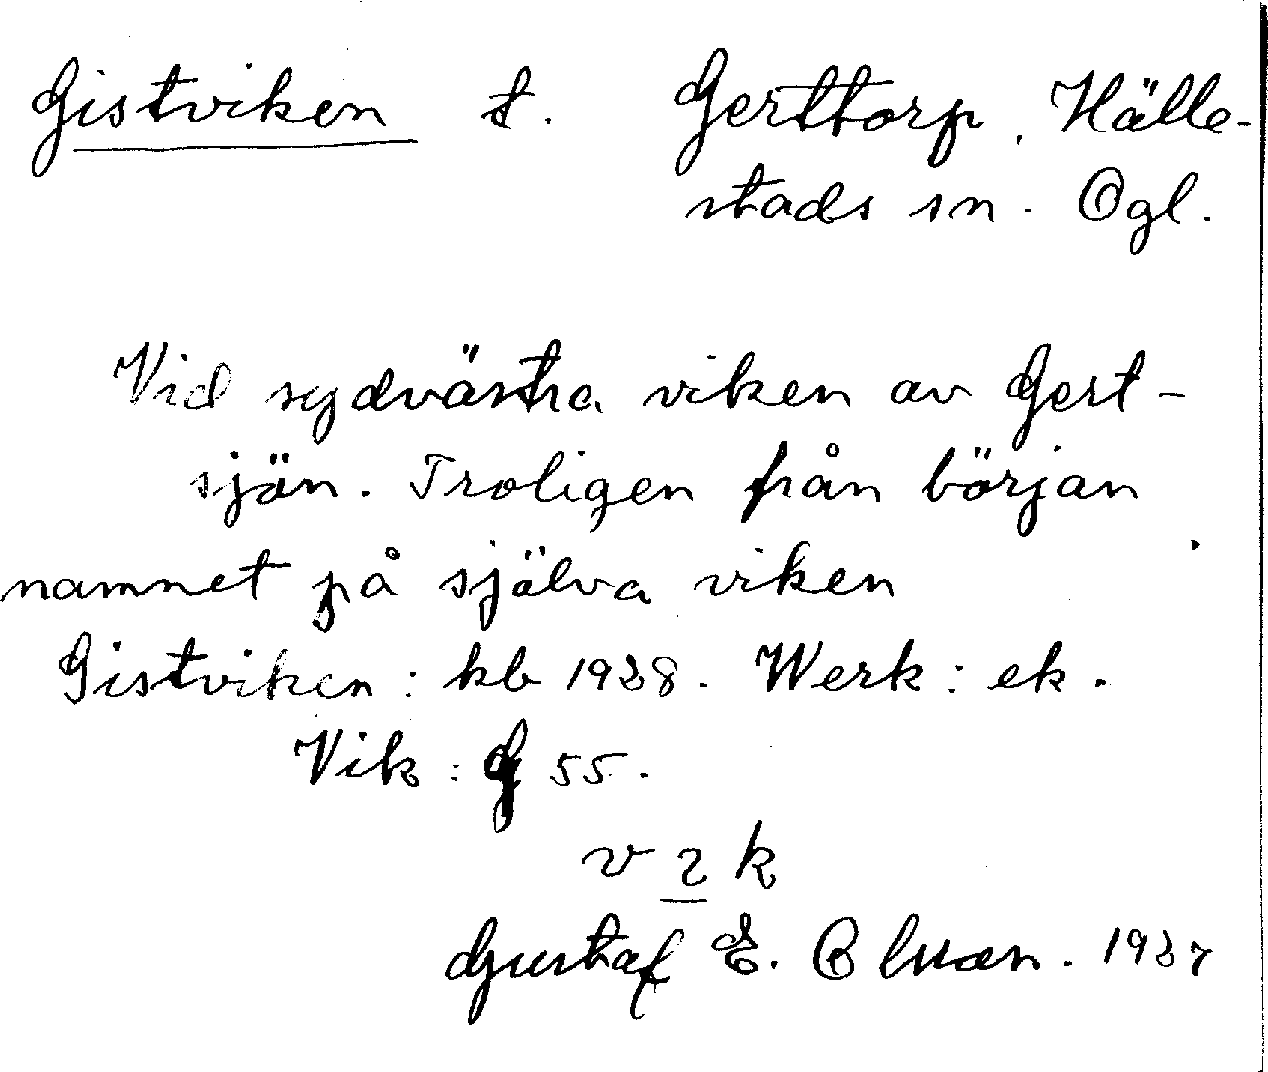 Gistviken t. Gerttorp, Hälle-
stads sn. Ogl.
Vid sydvästra viken av Gert-
sjön. Troligen från början
namnet på själva viken
Gistviken: kb 1938. Werk: ek.
Vik: G 55.
v 2 k
Gustaf E. Olsson. 1937